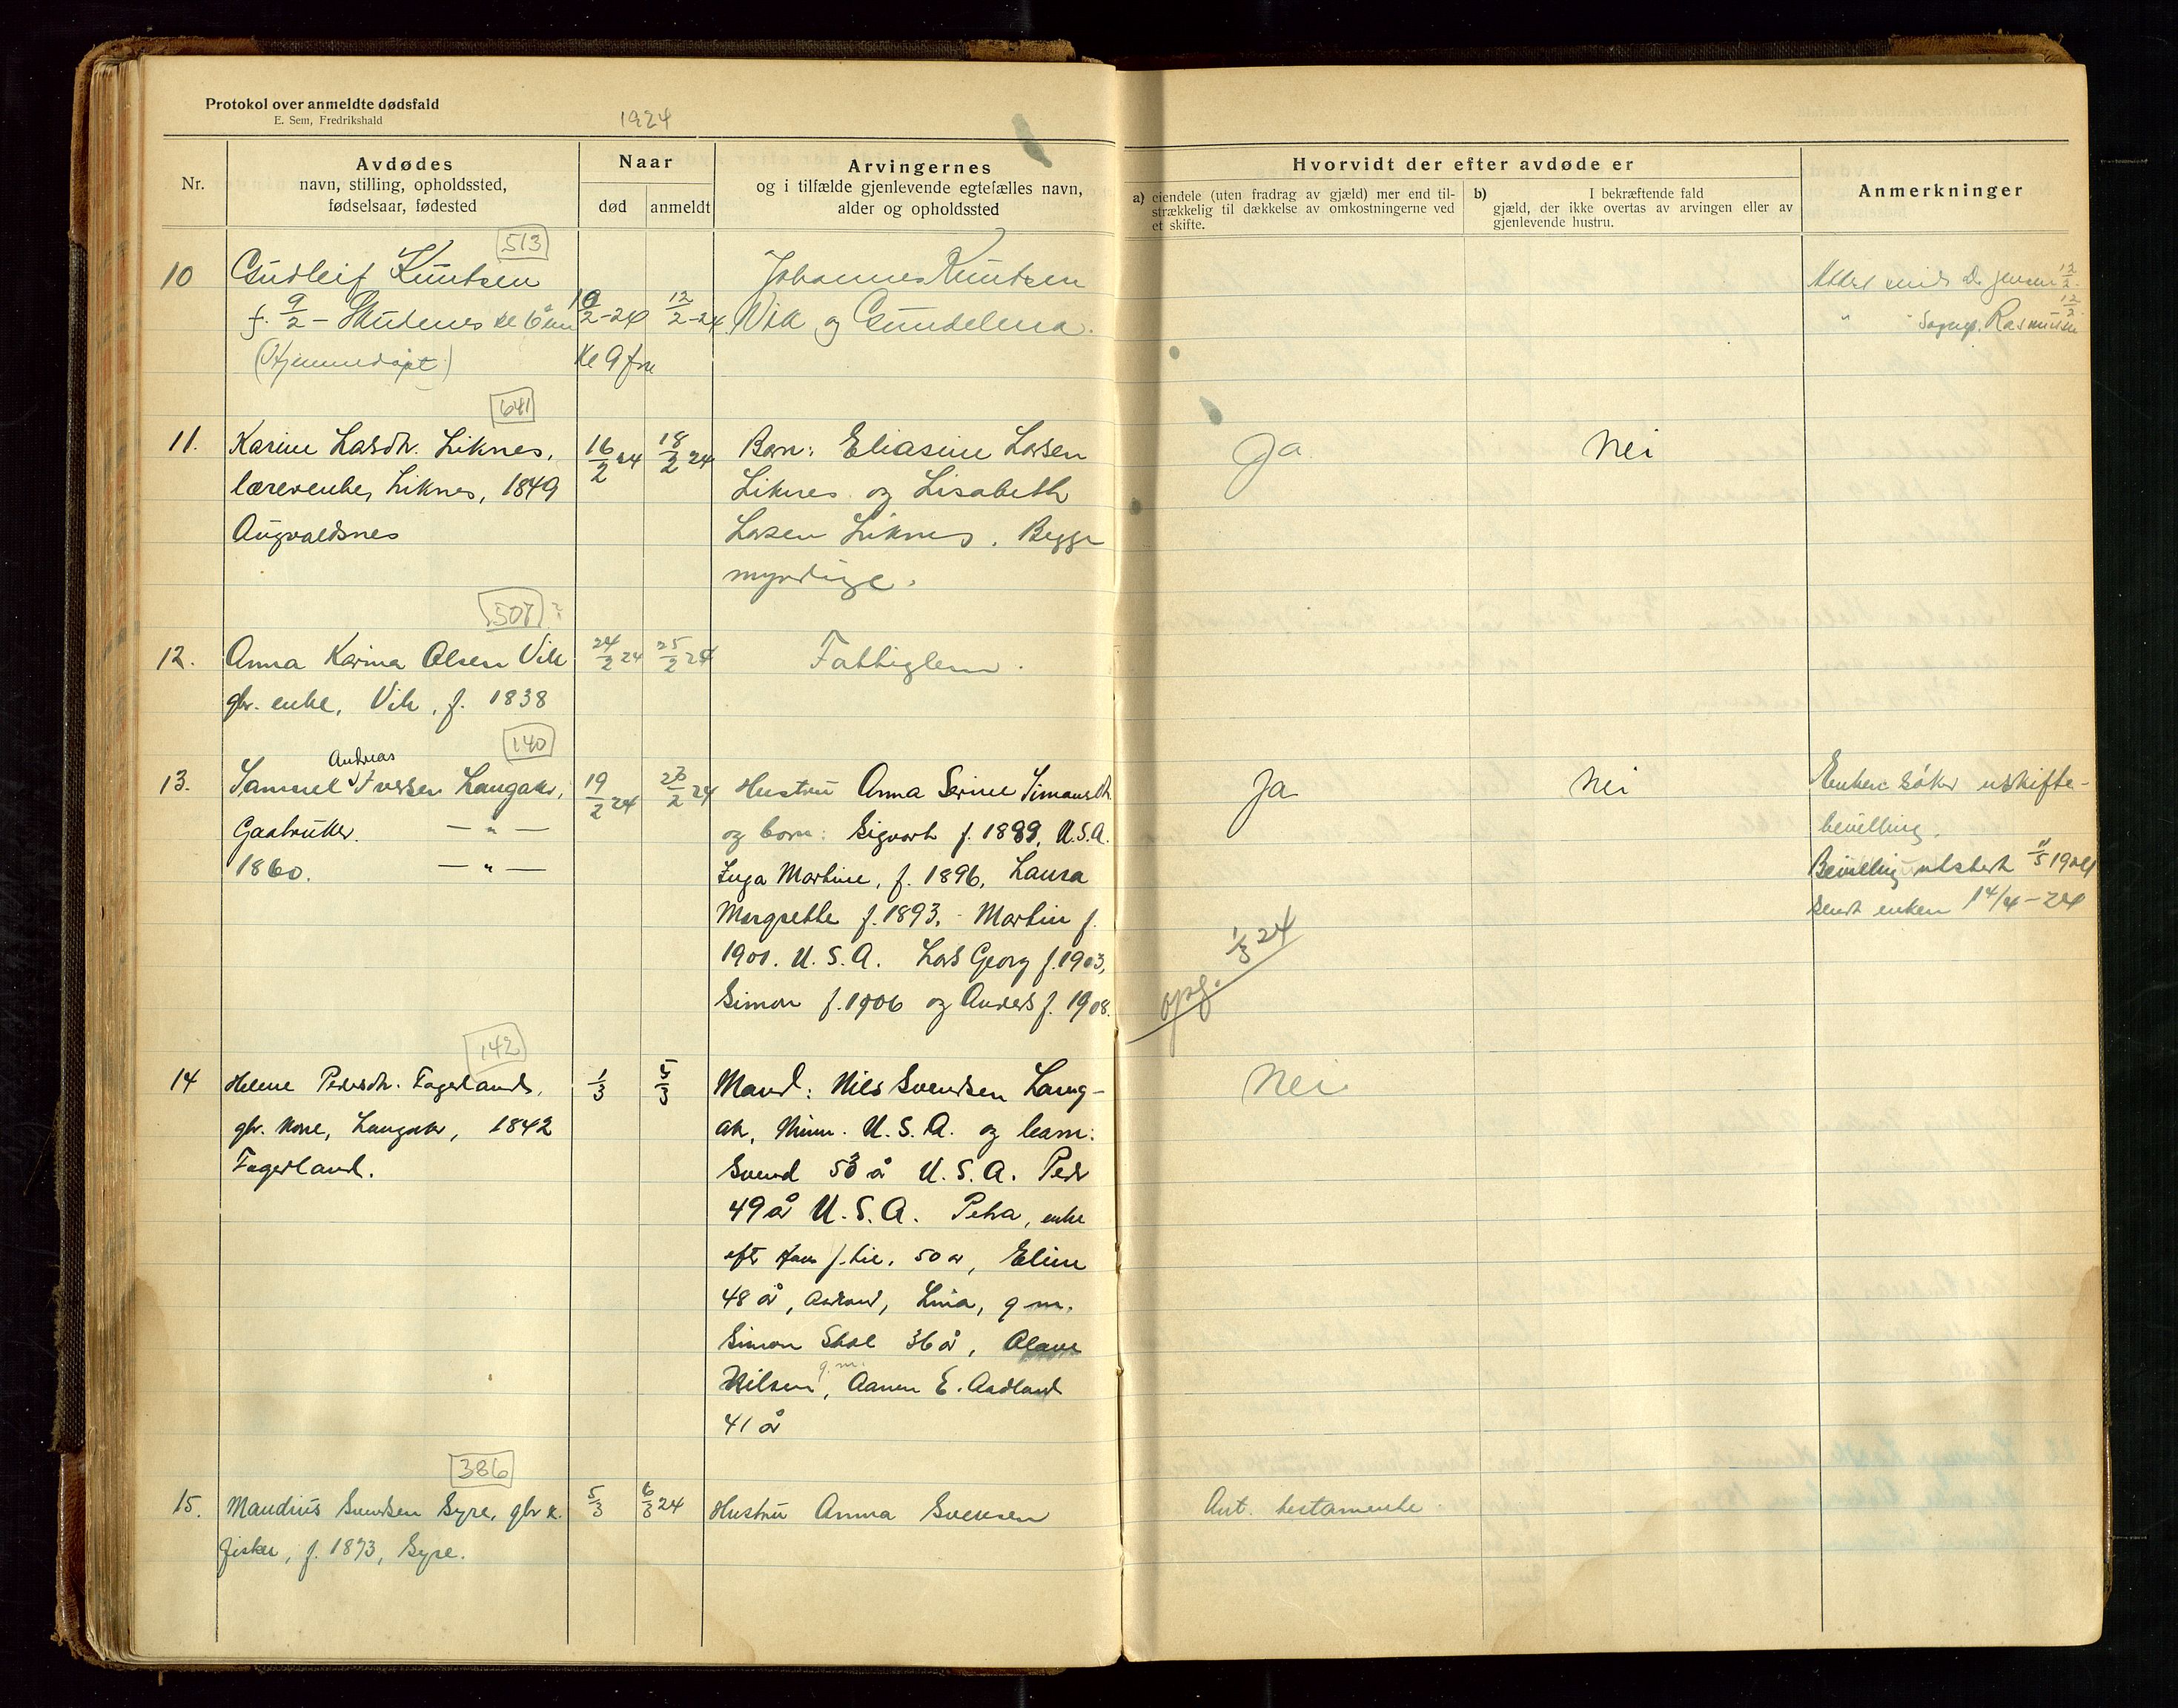 Protokol over anmeldte dødsfald
E. Sem, Fredrikshald
1924
Nr.
Avdødes
navn, stilling, opholdssted,
fødselsaar, fødested
Naar
død
anmeldt
Arvingernes
og i tilfælde gjenlevende egtefælles navn,
alder og opholdssted
Hvorvidt der efter avdøde er
a) eiendele (uten fradrag av gjæld) mer end til-
strækkelig til dækkelse av omkostningerne ved
et skifte.
b) I bekræftende fald
gjæld, der ikke overtas av arvingen eller av
gjenlevende hustru.
Anmerkninger
513
10 Gudleif Knutsen
f. 9/2 - Skudenes kl 6
(Hjemmedøpt)
10/2-24
kl 9 fm
12/2-24
Johannes Knutsen
Vik og Gundelena.
Attest D. Jensen 12/2
" " Rasmussen 12/2
641
11. Karine Larsdtr. Liknes,
lærerenke, Liknes, 1849
Augvaldsnes
16/2 24
18/2 24
Børn: Eliasine Larsen
Liknes og Lisabeth
Larsen Liknes. Begge
myndige.
Ja
Nei
507 ?
12. Anna Karina Olsen Vik
gbr. enke, Vik, f. 1838
24/2 24
25/2 24
Fattiglem.
140
Andreas
13. Samuel Iversen Langaker,
Gaabruker. — " —
1860. — " —
19/2 24
23/2 24
Hustru Anna Serine Simonsdtr.
og børn: Sigvart f. 1889, U.S.A.
Inga Martine, f. 1896, Laura
Margrethe f. 1893. Martin f.
1901. U.S.A. Lars Georg f. 1903,
Simon f. 1906 og Anders f. 1908.
Ja
Nei
Enken søker uskifte-
bevilling.
Bevilling utstedt 1924
Sendt enken 14/4-24
opg. 1/3 24
142
14 Helene Pedersdtr. Fagerland,
gbr. kone, Langaker, 1842
Fagerland.
1/3
5/3
Mand: Nils Svendsen Lang-
ak, Minn. U.S.A. og barn:
Svend 53 å U.S.A. Peder
49 år U.S.A. Petra, enke
efter Hans 50 år, Eline
48 år, Aadland, Lina, g. m.
Simon 36 år, Olave
Nilsen, g.m. Aanen E. Aadland
41 år
Nei
386
15. Mandius Svendsen Syre, gbr. &
fisker, f. 1873, Syre.
5/3
6/3 24
Hustru Anna Svensen
Ant. testamente.